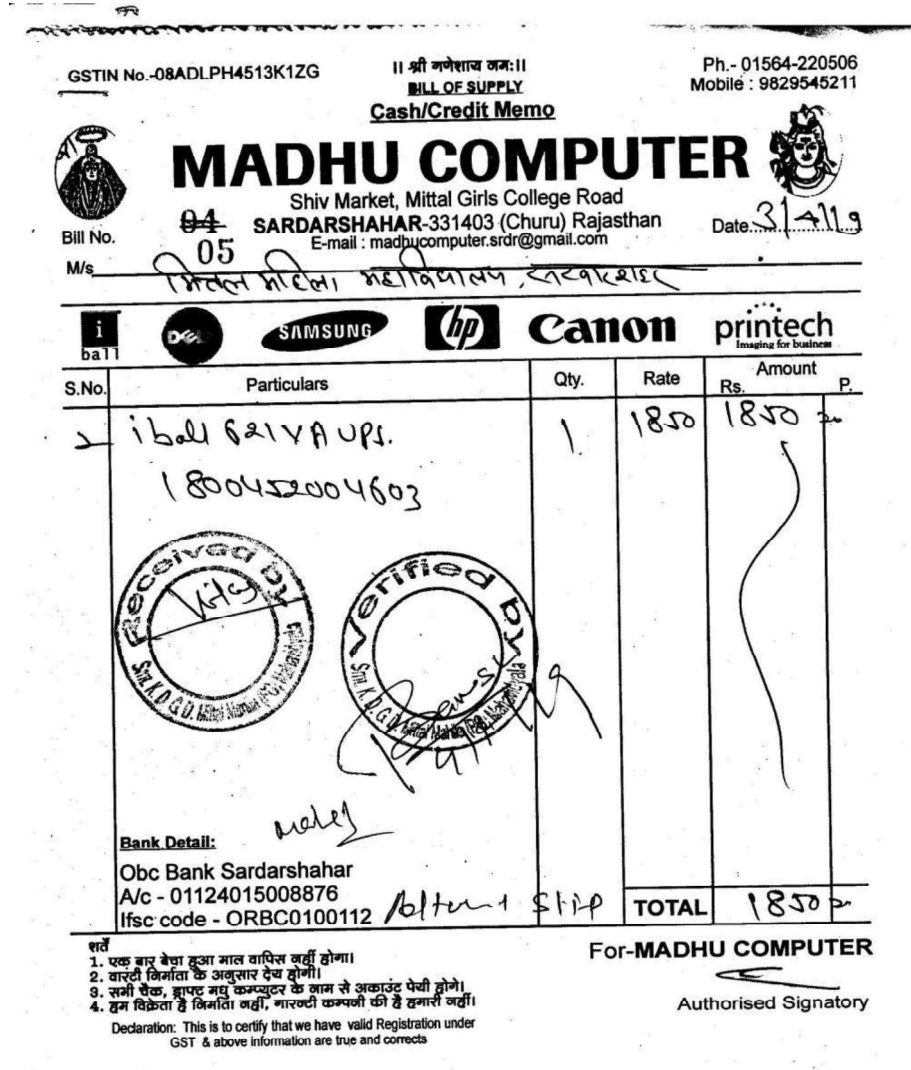 GSTIN No.-08ADLPH4513K1ZG
|| श्री गणेशाय नमः||
BILL OF SUPPLY
Cash/Credit Memo
Ph.- 01564-220506
Mobile : 9829545211
MADHU COMPUTER
Shiv Market, Mittal Girls College Road
SARDARSHAHAR-331403 (Churu) Rajasthan
E-mail : madhucomputer.srdr@gmail.com
Bill No. 04
05
Date. 3/4/19
M/s मित्तल महिला महाविद्यालय, सरदारशहर
i ball DELL SAMSUNG hp Canon printech
Imaging for business
S.No. Particulars Qty. Rate Amount
Rs. P.
iball 621VA UPS. 1 1850 1850
1800452004603
Received by
Smt. K.D.G.D. Mittal Mahila (PG) Mahavidhyalaya
Verified by
Smt. K.D.G.D. Mittal Mahila (PG) Mahavidhyalaya
Bank Detail:
Obc Bank Sardarshahar
A/c - 01124015008876
Ifsc code - ORBC0100112
Slip
TOTAL 1850
शर्तें
1. एक बार बेचा हुआ माल वापिस नहीं होगा।
2. वारंटी निर्माता के अनुसार देय होगी।
3. सभी चैक, ड्राफ्ट मधु कम्प्युटर के नाम से अकाउंट पेयी होगे।
4. हम विक्रेता है निर्माता नहीं, गारन्टी कम्पनी की है हमारी नहीं।
Declaration: This is to certify that we have valid Registration under
GST & above information are true and corrects
For-MADHU COMPUTER
Authorised Signatory